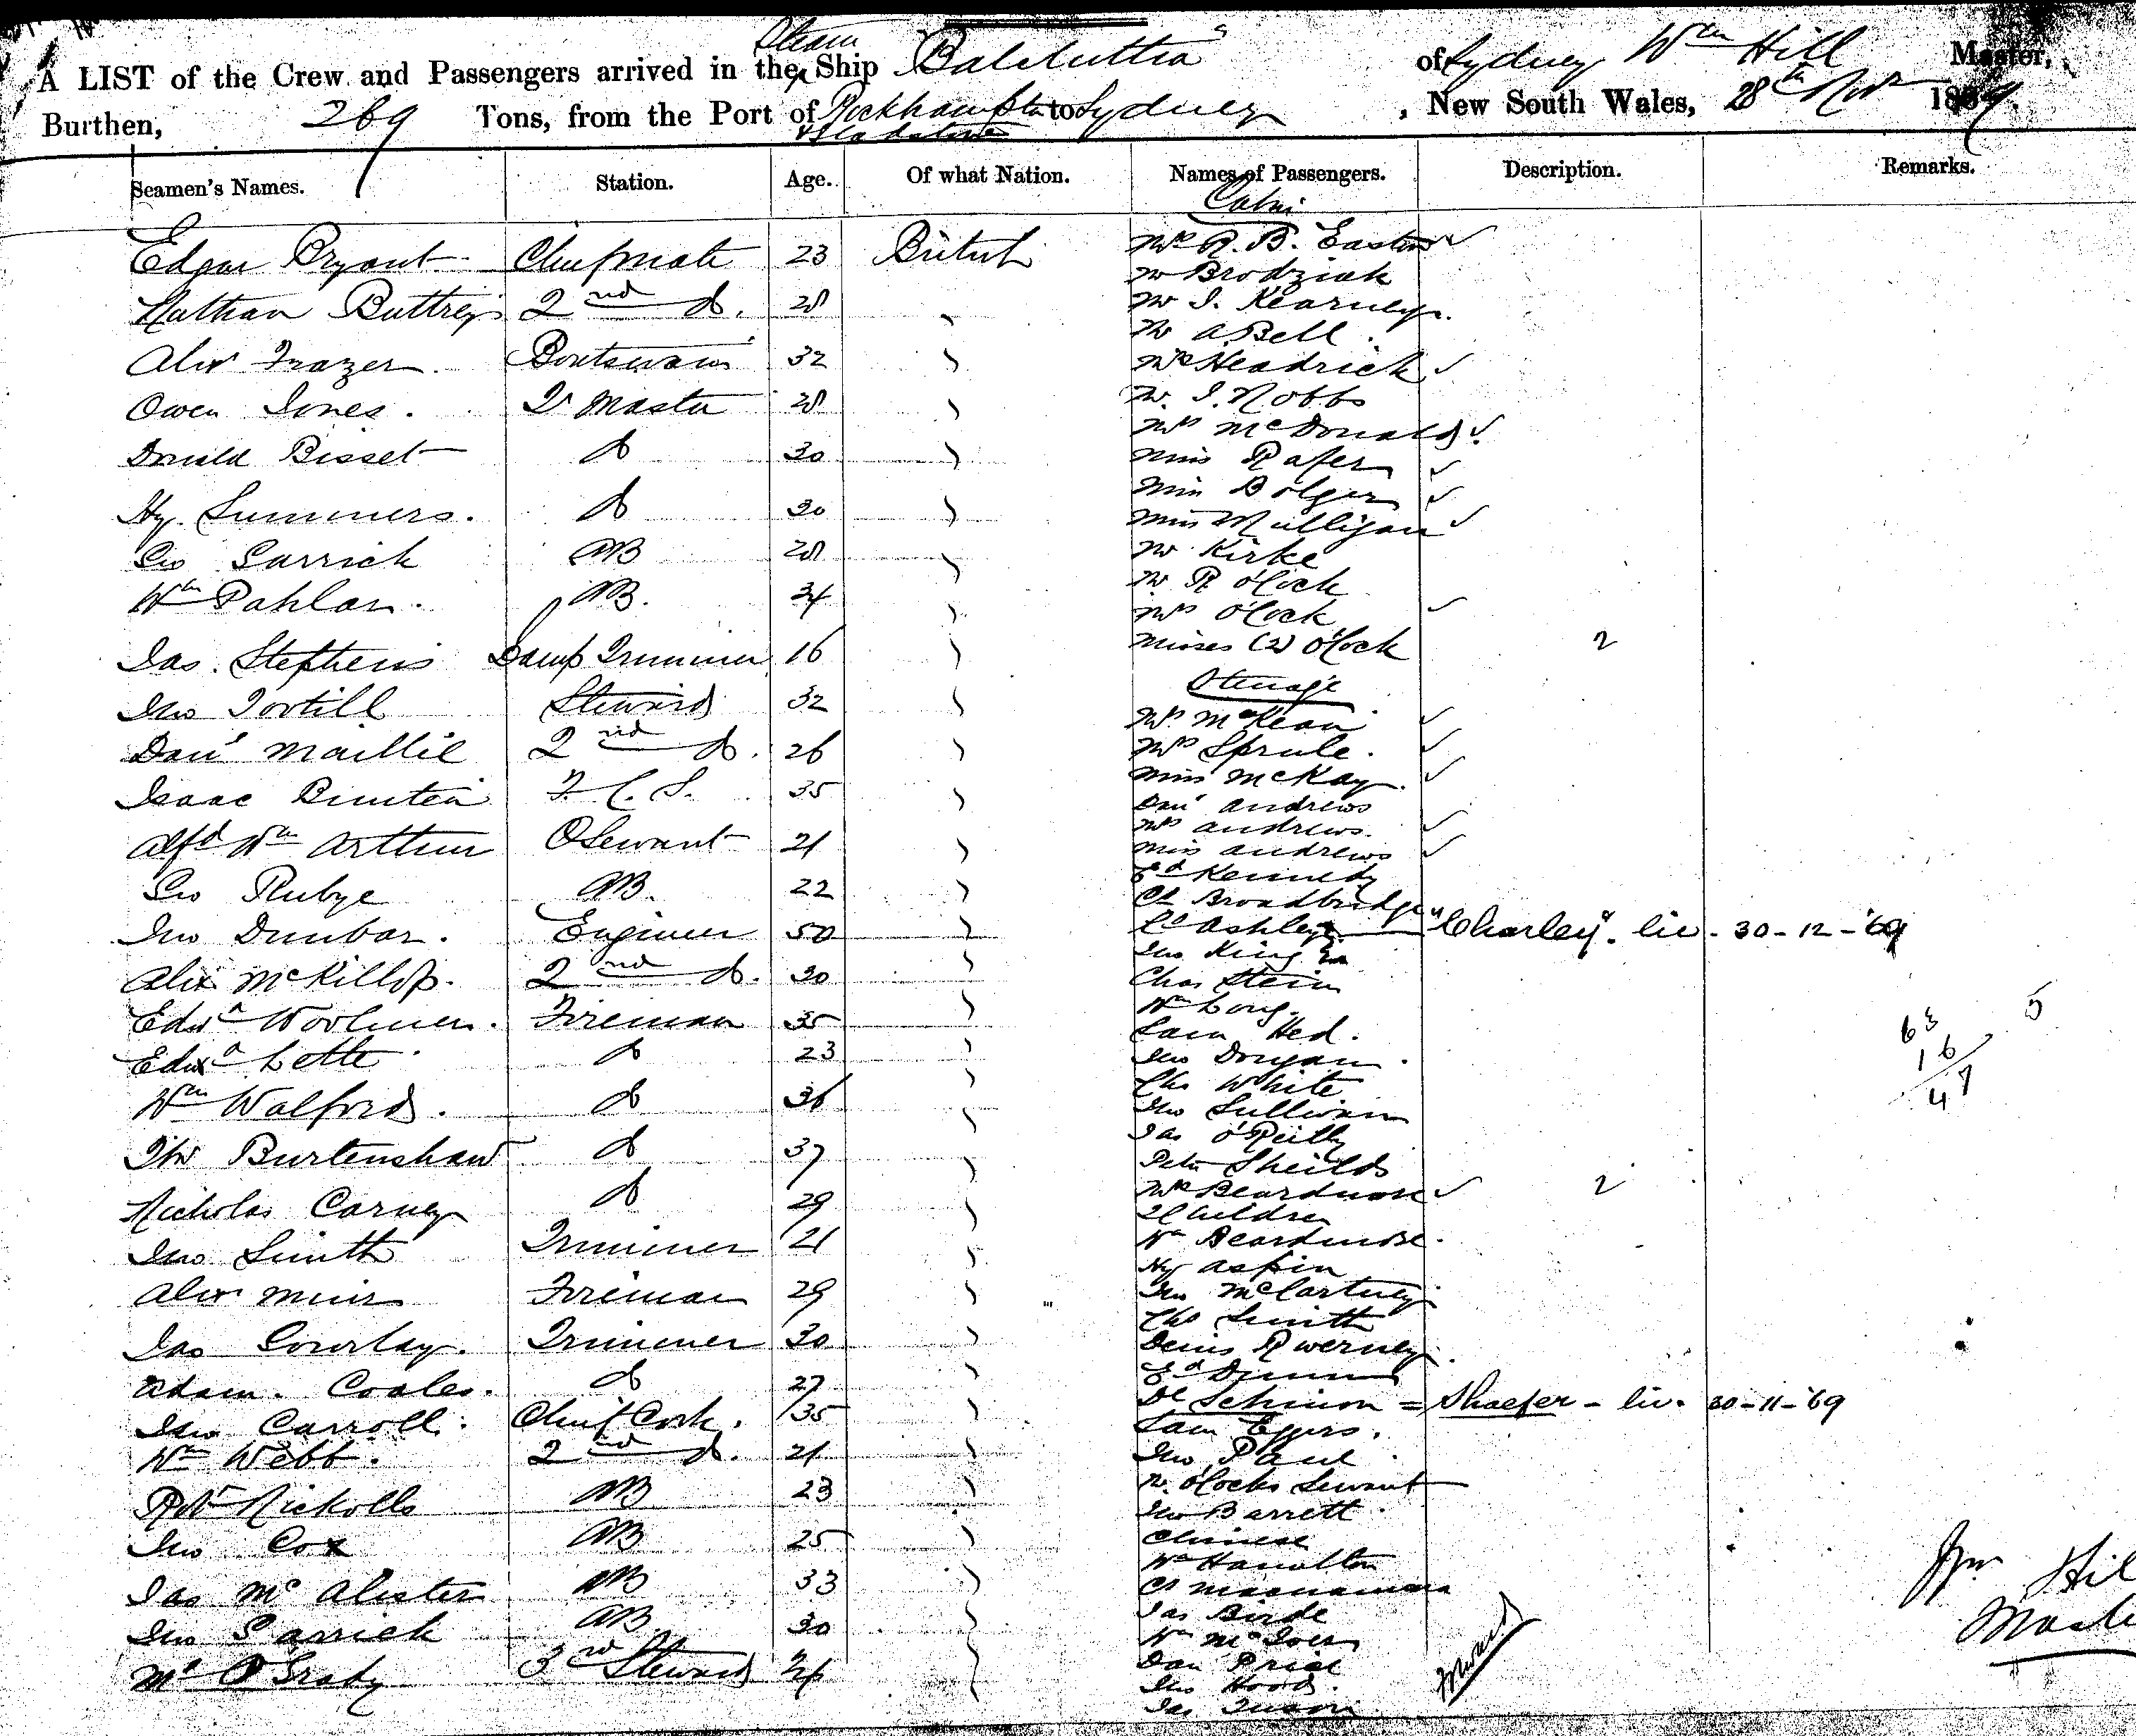 Steam
A LIST of the Crew and Passengers arrived in the Ship "Balclutha" of Sydney Wm Hill Master,
Burthen, 269 Tons, from the Port of Rockhampton to Sydney, New South Wales, 28th Novr 1869.
& Gladstone
Seamen's Names. Station. Age. Of what Nation. Names of Passengers. Description. Remarks.
Cabin
Edgar Bryant Chief mate 23 British
Nathan Buttrey 2nd do. 28
Alexr Frazer 32 Boatswain
Owen Jones. Qr Master 28
Donald Bisset do 30
Hy Summers. do 30
Geo Garrick AB 28
Wm Pahlan. AB. 34
Jas. Stephens Lamp Trimmer 16
Jno Tootill Steward 32
Danl Maillie 2nd do. 26
Isaac F. C. S. 35
Alfd Wm Arthur 21
Geo Rubye AB. 22
Jno Dunbar. Engineer 50
Alex McKillop. 2nd do. 30
Edwd Woolmer. Fireman 35
Edwd Lette do 23
Wm Walford. do 36
Burtenshaw do 37
Nicholas Carney do 29
Jno Smith Trimmer 21
Alexr Muir Fireman 29
Jas Gourlay. Trimmer 30
Adam. Coales. do 27
Jno Carroll. Chief Cook. 35
Wm Webb. 2nd do. 21
Robt Nickolls AB 23
Jno Cox AB 25
Jas McAlister AB 33
Jno Garrick AB 30
O'Grady 3rd Steward
Mrs R. B. Easton
Mr Brodziak
Mr J. Kearney.
Mr A Bell.
Mrs Headrick
Mr. J. Nobbs
Mrs McDonald
Miss Rafer
Miss Bolger
Miss Mulligan
Mr Kirke
Mr R O'Cock
Mrs O'Cock
Misses (2) O'Cock 2
Steerage
Mrs McKean
Mrs Sprule.
Miss McKay.
Danl Andrews
Mrs Andrews.
Miss Andrews
Ed Kennedy
Ch Broadbridge
Cs Ashley "Charley". liv. 30-12-'69
Jno King
Chas Stein
Wm Long.
Sam Hed.
Jno Dorgan.
Chs White
Jno Sullivan
Jas O'Reilly
Peter Sheilds
Mrs Beardmore 2
2 Children
Wm Beardmore.
Hy Aspin
Jno McCartney
Chs Smith
Denis
Ed Dunn
Schimon = Shaefer - liv. 30-11-'69
Sam Eggers.
Jno Paul
Mr. O'Cocks Servant
Jno Barrett
Chinese
Wm Hamilton
Cs Macnamara
Jas Birde
Wm
Dan Price
Jno Hood.
Jas
63
16
47
5
Forward
Wm Hil
Maste